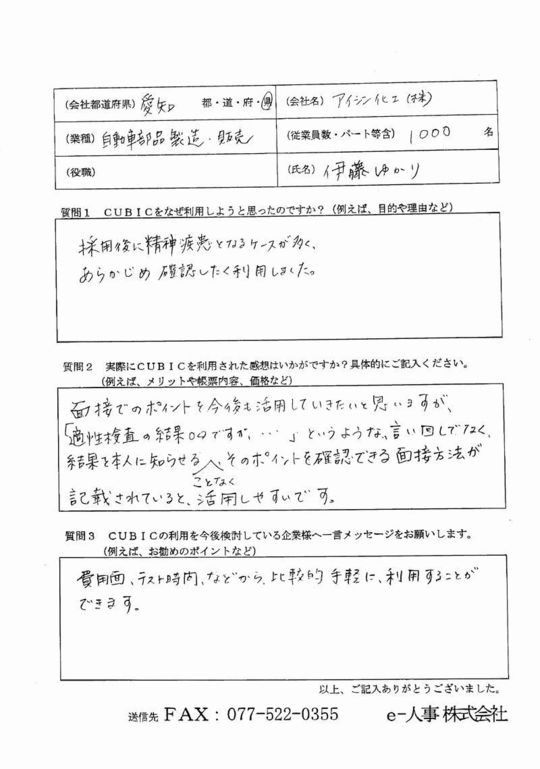 (会社都道府県) 愛知 都・道・府・県 (会社名) アイシン化工(株)
(業種) 自動車部品製造・販売 (従業員数・パート等含) 1000 名
(役職) (氏名) 伊藤ゆかり
質問1 CUBICをなぜ利用しようと思ったのですか?(例えば、目的や理由など)
採用後に精神疾患となるケースが多く、
あらかじめ確認したく利用しました。
質問2 実際にCUBICを利用された感想はいかがですか?具体的にご記入ください。
(例えば、メリットや帳票内容、価格など)
面接でのポイントを今後も活用していきたいと思いますが、
「適性検査の結果〇〇ですが、…」というような、言い回しでなく、
結果を本人に知らせることなく、そのポイントを確認できる面接方法が
記載されていると、活用しやすいです。
質問3 CUBICの利用を今後検討している企業様へ一言メッセージをお願いします。
(例えば、お勧めのポイントなど)
費用面、テスト時間、などから、比較的手軽に、利用することが
できます。
以上、ご記入ありがとうございました。
送信先 FAX:077-522-0355 e-人事株式会社